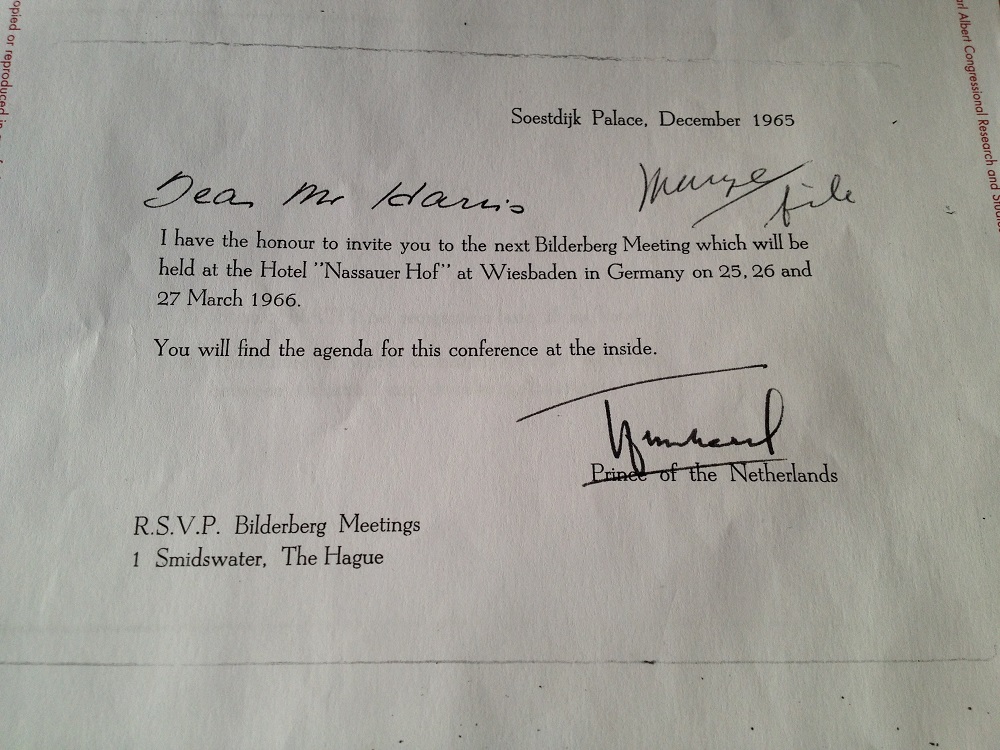 opied or reproduced in
arl Albert Congressional Research and Studies
Soestdijk Palace, December 1965
Dear Mr Harris
Marge file
I have the honour to invite you to the next Bilderberg Meeting which will be
held at the Hotel "Nassauer Hof" at Wiesbaden in Germany on 25, 26 and
27 March 1966.
You will find the agenda for this conference at the inside.
Bernhard
Prince of the Netherlands
R.S.V.P. Bilderberg Meetings
1 Smidswater, The Hague